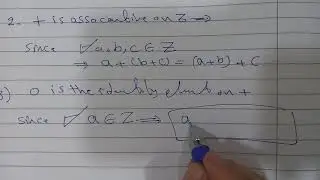 2. + is assocative on Z ⇒
since ∀ a,b,c ∈ Z
⇒ a+(b+c) = (a+b)+c
3) 0 is the identity elment on +
since ∀ a ∈ Z ⇒ a